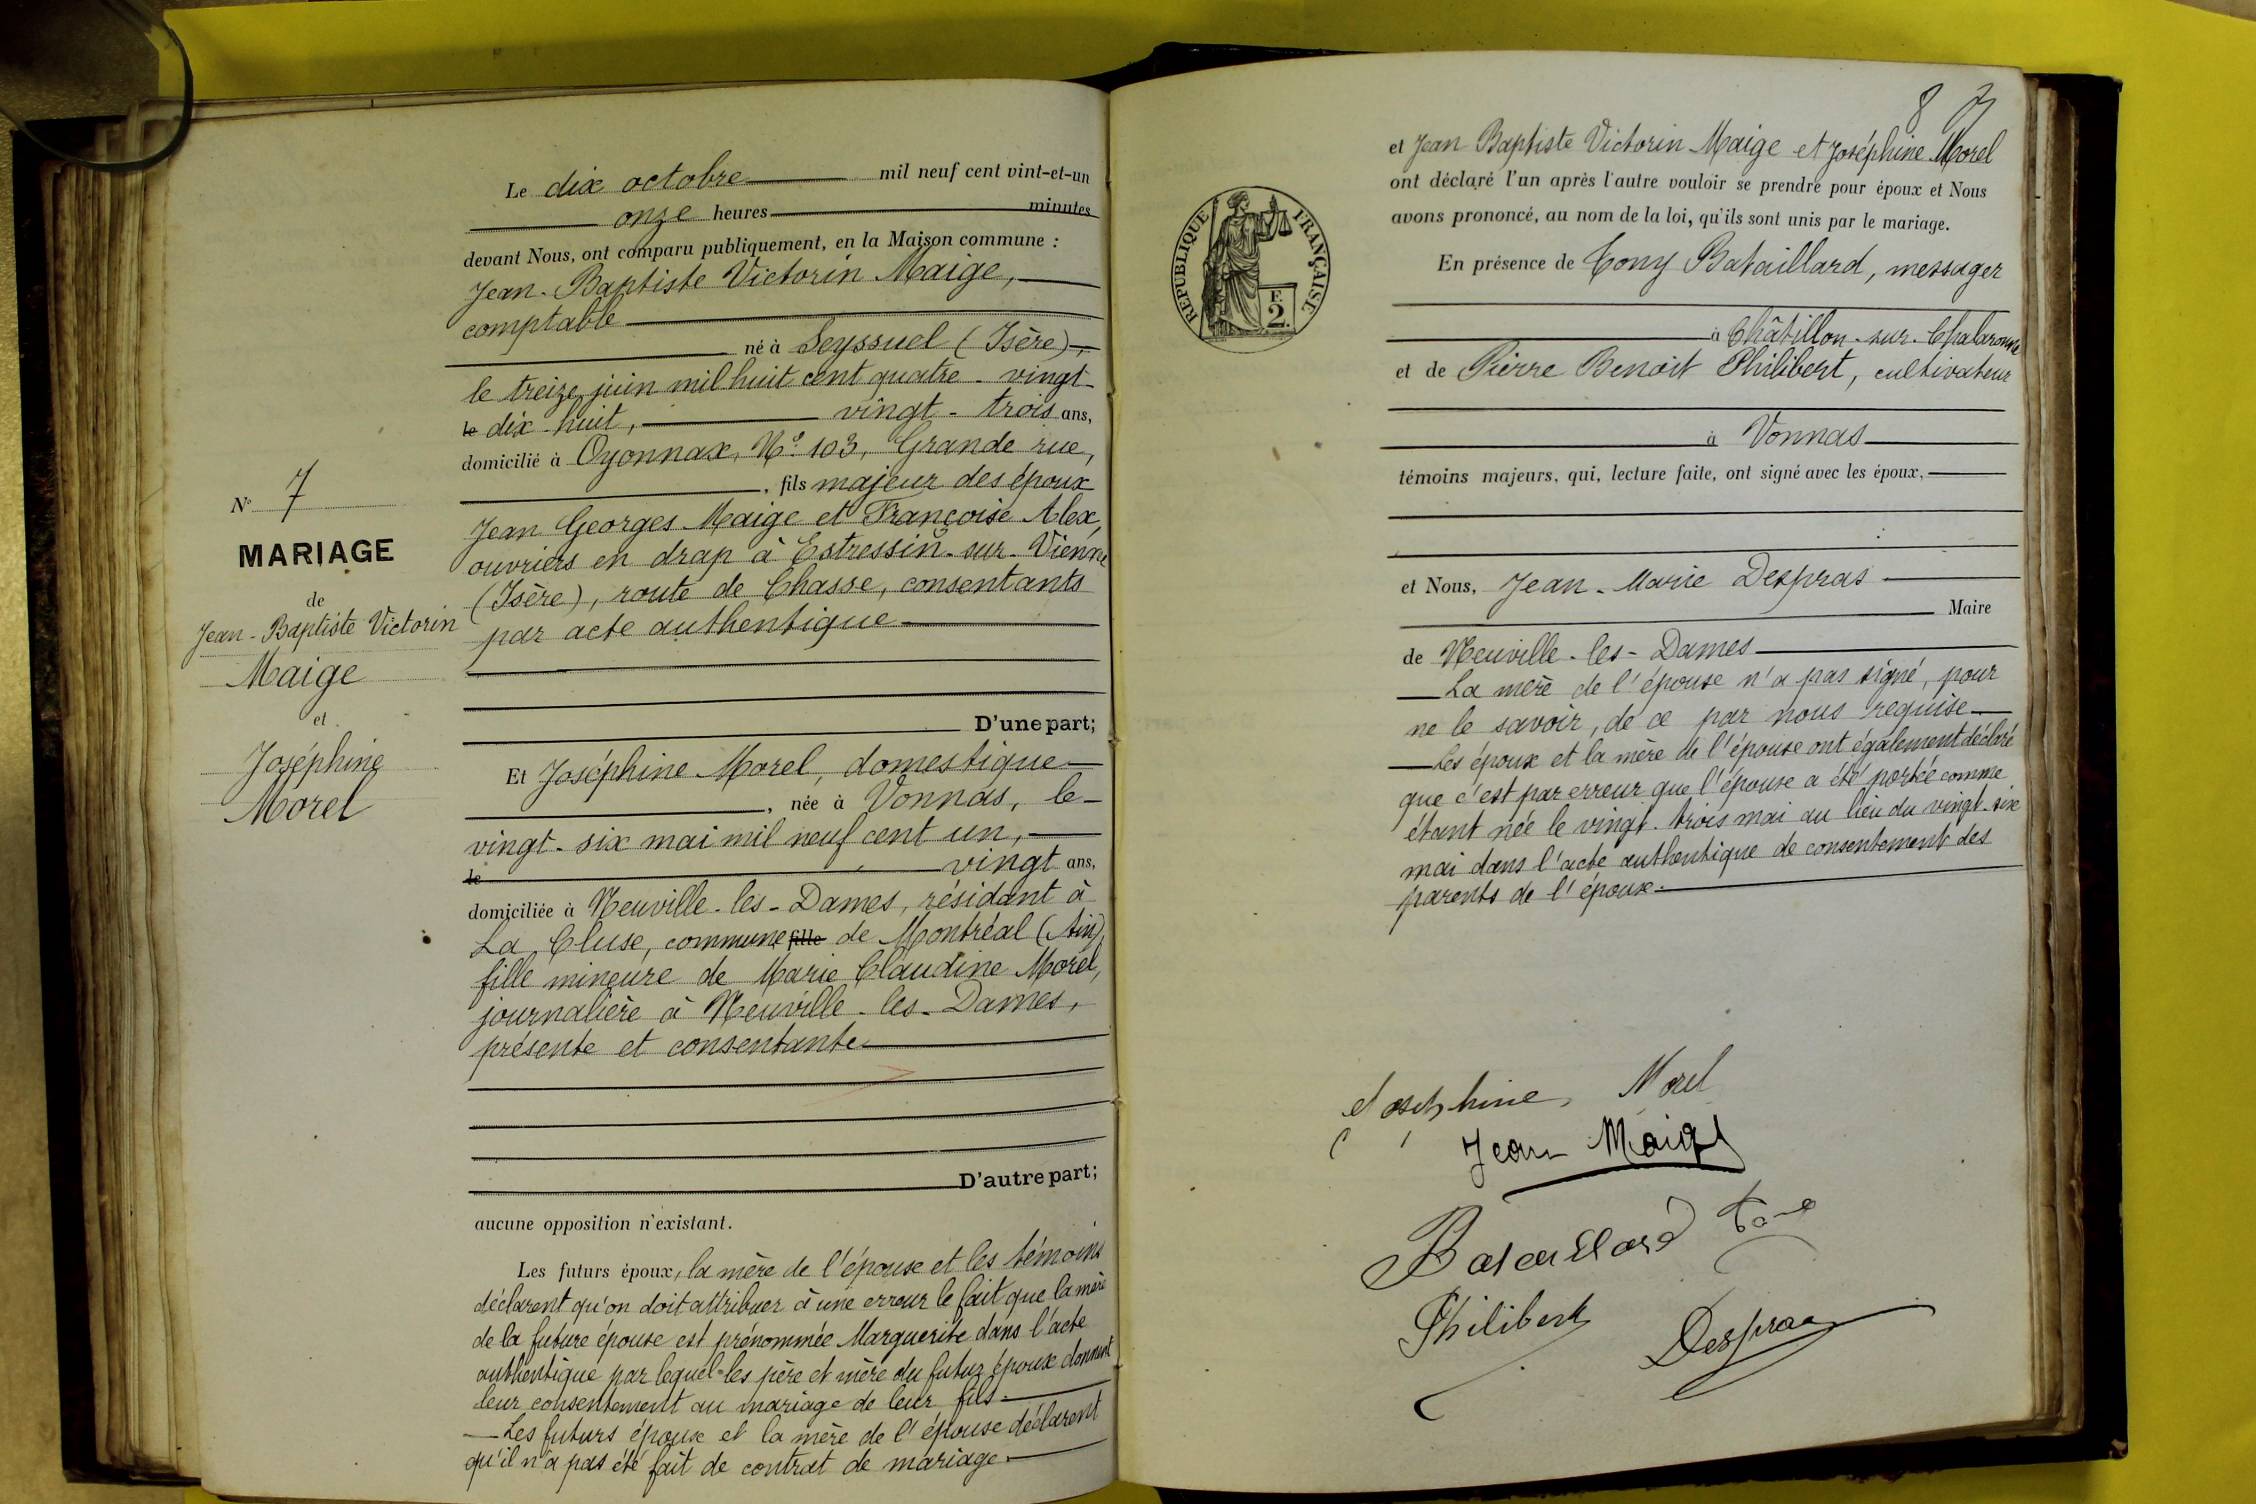 Le dix octobre mil neuf cent vint-et-un
onze heures minutes
devant Nous, ont comparu publiquement, en la Maison commune :
Jean-Baptiste Victorin Maige,
comptable
né à Seyssuel (Isère),
le treize juin mil huit cent quatre-vingt-
le dix-huit, vingt-trois ans,
domicilié à Oyonnax, N° 103, Grande rue,
, fils majeur des époux
Jean Georges Maige et Françoise Alex,
ouvriers en drap à Estressin-sur-Vienne
(Isère), route de Chasse, consentants
par acte authentique
D'une part;
Et Joséphine Morel, domestique
, née à Vonnas, le
vingt-six mai mil neuf cent un,
le vingt ans,
domiciliée à Neuville-les-Dames, résidant à
La Cluse, commune fille de Montréal (Ain),
fille mineure de Marie Claudine Morel,
journalière à Neuville-les-Dames,
présente et consentante
D'autre part;
aucune opposition n'existant.
Les futurs époux, la mère de l'épouse et les témoins
déclarent qu'on doit attribuer à une erreur le fait que la mère
de la future épouse est prénommée Marguerite dans l'acte
authentique par lequel les père et mère du futur époux donnent
leur consentement au mariage de leur fils.
Les futurs époux et la mère de l'épouse déclarent
qu'il n'a pas été fait de contrat de mariage.
N° 7
MARIAGE
de
Jean-Baptiste Victorin
Maige
et
Joséphine
Morel
8
et Jean Baptiste Victorin Maige et Joséphine Morel
ont déclaré l'un après l'autre vouloir se prendre pour époux et Nous
avons prononcé, au nom de la loi, qu'ils sont unis par le mariage.
En présence de Tony Bataillard, messager
à Châtillon-sur-Chalaronne
et de Pierre Benoit Philibert, cultivateur
à Vonnas
témoins majeurs, qui, lecture faite, ont signé avec les époux,
et Nous, Jean-Marie Despras
Maire
de Neuville-les-Dames
La mère de l'épouse n'a pas signé, pour
ne le savoir, de ce par nous requise
Les époux et la mère de l'épouse ont également déclaré
que c'est par erreur que l'épouse a été portée comme
étant née le vingt-trois mai au lieu du vingt-six
mai dans l'acte authentique de consentement des
parents de l'époux.
RÉPUBLIQUE FRANÇAISE
F.
2.
Joséphine Morel
Jean Maige
Bataillard Tony
Philibert
Despras